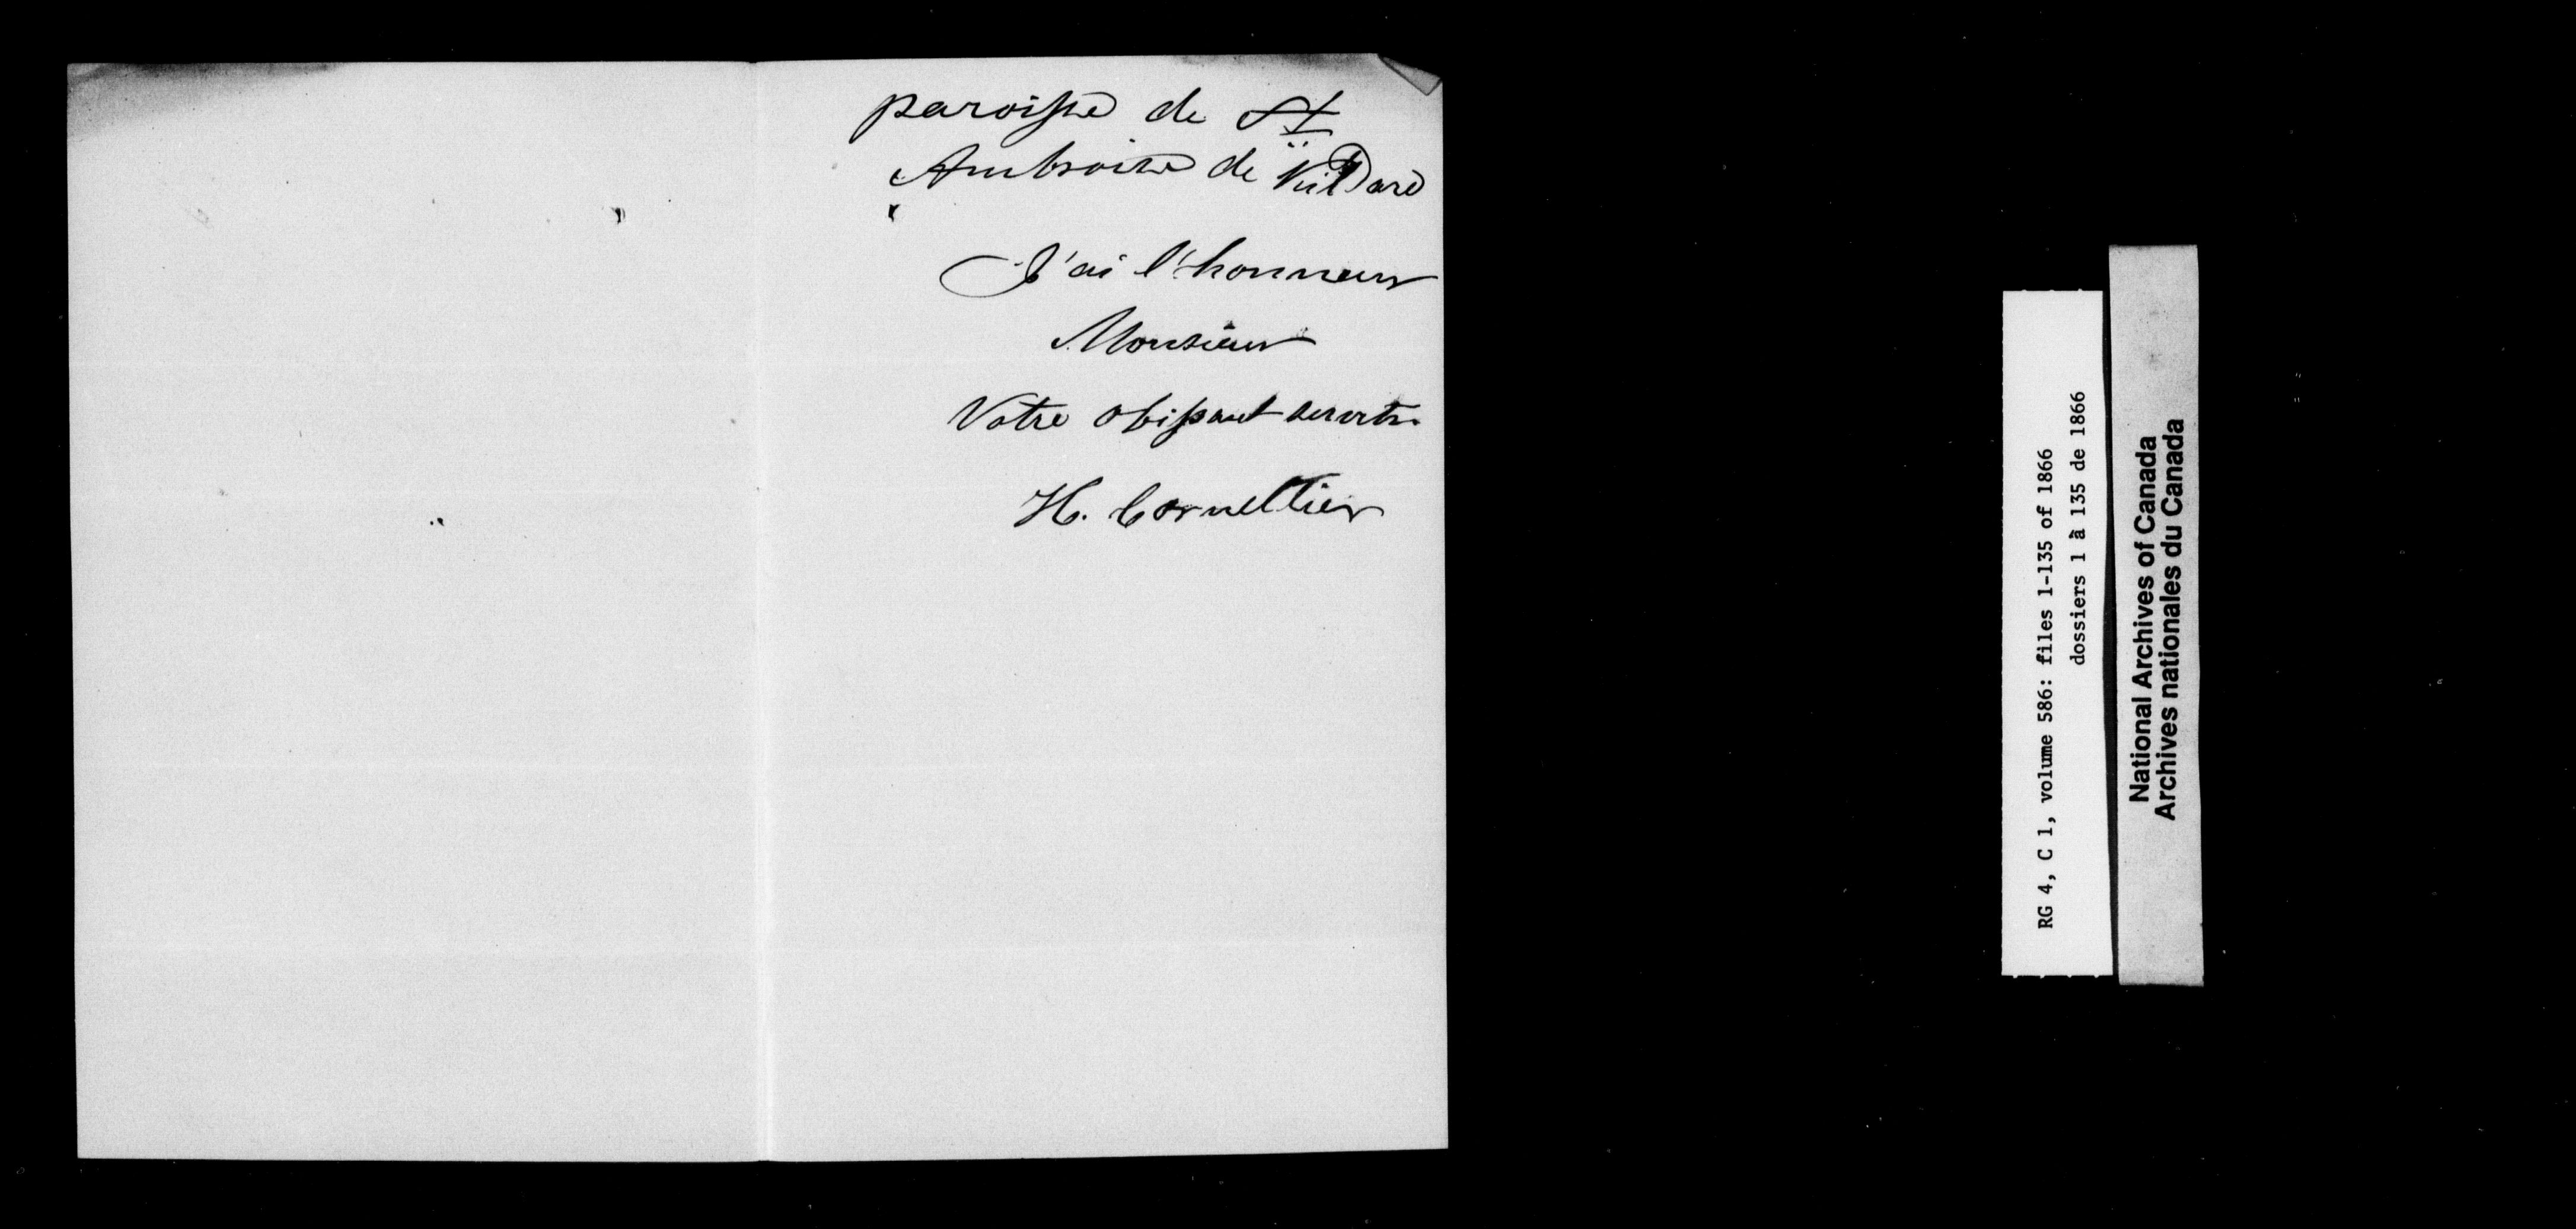 paroisse de St
Ambroise de Kildare
J'ai l'honneur
Monsieur
Votre obissant servtr.
H. Cornellier
RG 4, C 1, volume 586: files 1-135 of 1866
dossiers 1 à 135 de 1866
National Archives of Canada
Archives nationales du Canada